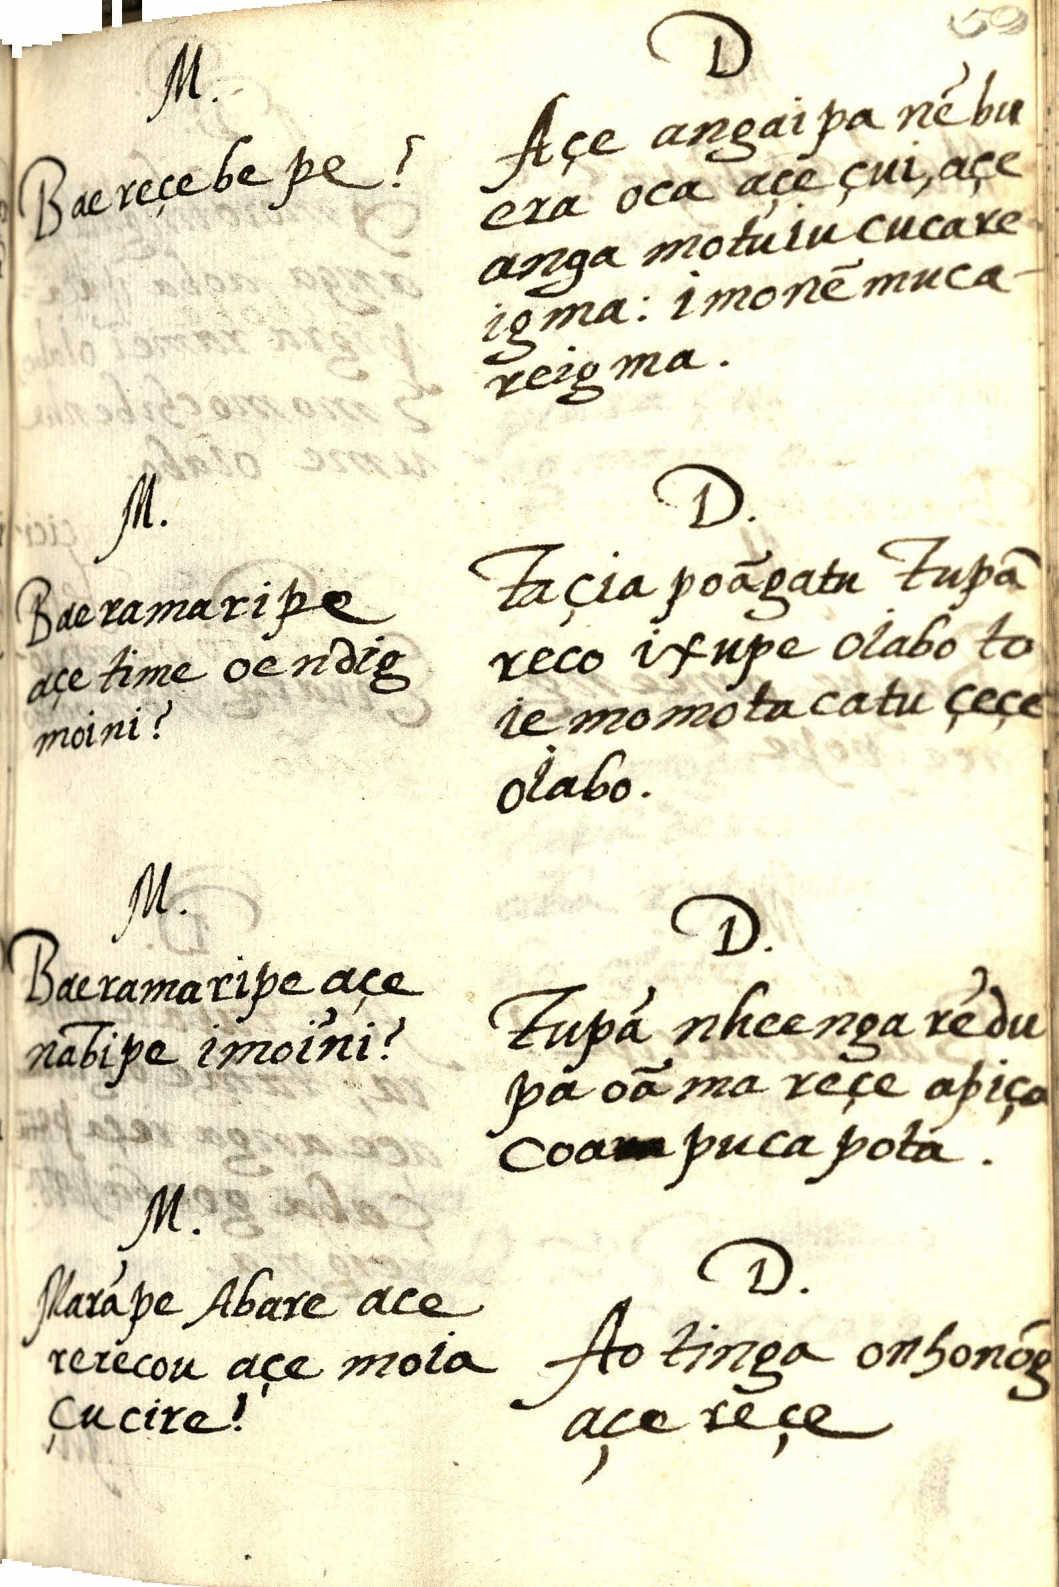 50
M.
Bae reçe be pe?
D
Açe angaipa nẽ bu
era oca açe çui, açe
anga motuiu cucare
igma: imonẽ muca-
reigma.
M.
Bae ramaripe
açe time oendig
moini?
D.
Taçia poãgatu Tupã
reco ixupe oiabo to
ie momota catu çeçe
oiabo.
M.
Baeramaripe açe
nãbipe imoini?
D.
Tupã nheenga rẽdu
pa oãma reçe apiça
coa puca pota.
M.
Marãpe Abare ace
rerecou açe moia
çucire?
D.
Ao tinga onhonõg
açe reçe